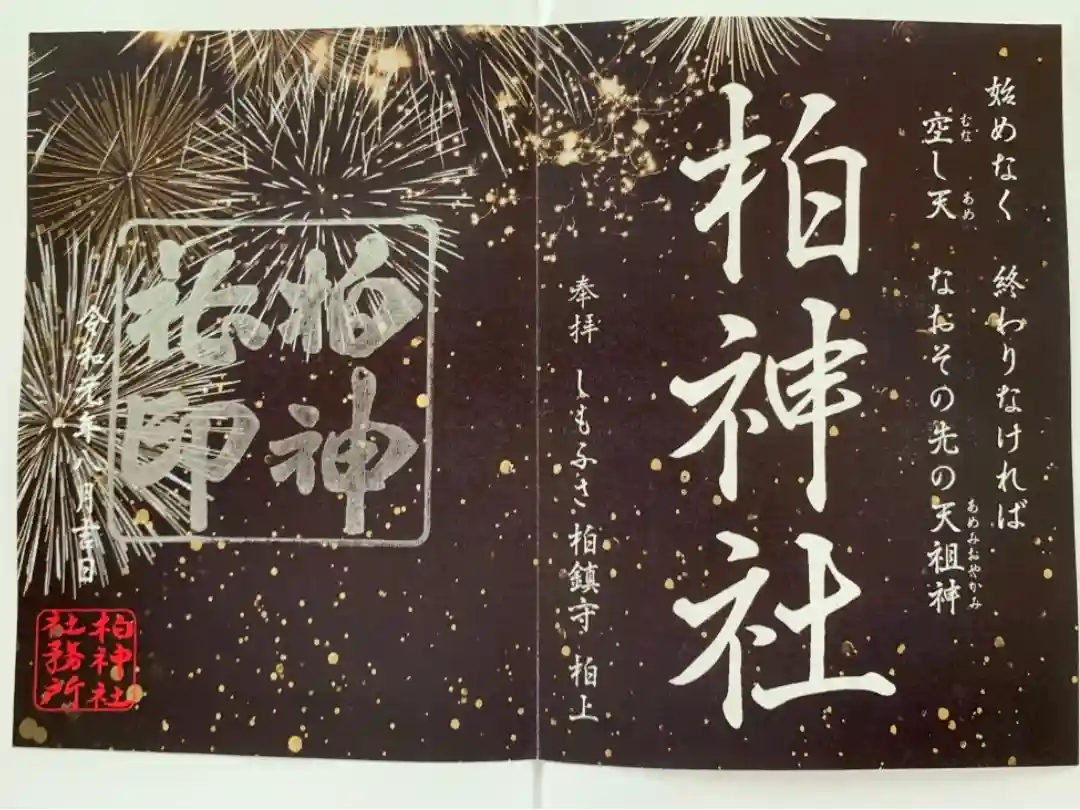 始めなく 終わりなければ
空し天 なおその先の天祖神
むな あめ あめみおやかみ
柏神社
奉拝 しもふさ 柏鎮守 柏上
柏神
社印
令和元年八月吉日
柏神社
社務所